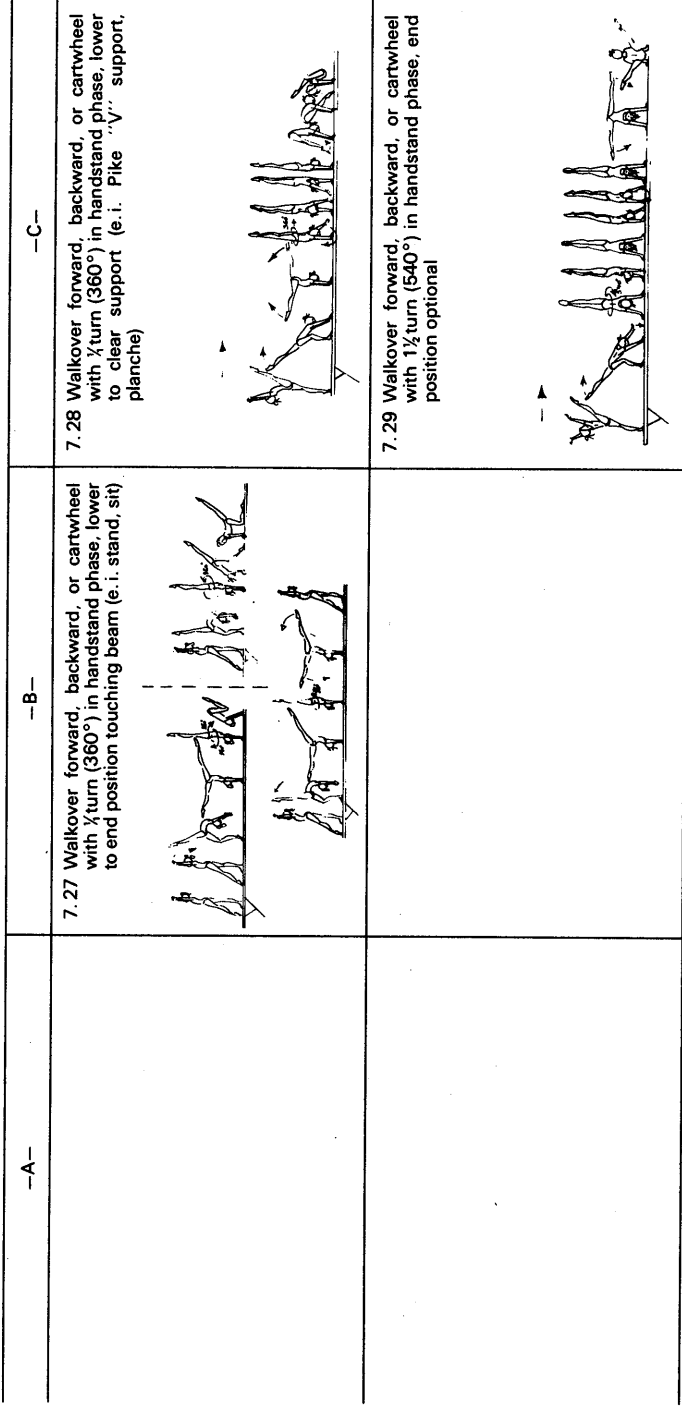 –A–
–B–
–C–
7.27 Walkover forward, backward, or cartwheel
with 1/1 turn (360°) in handstand phase, lower
to end position touching beam (e.i. stand, sit)
7.28 Walkover forward, backward, or cartwheel
with 1/1 turn (360°) in handstand phase, lower
to clear support (e.i. Pike "V" support,
planche)
7.29 Walkover forward, backward, or cartwheel
with 1½ turn (540°) in handstand phase, end
position optional